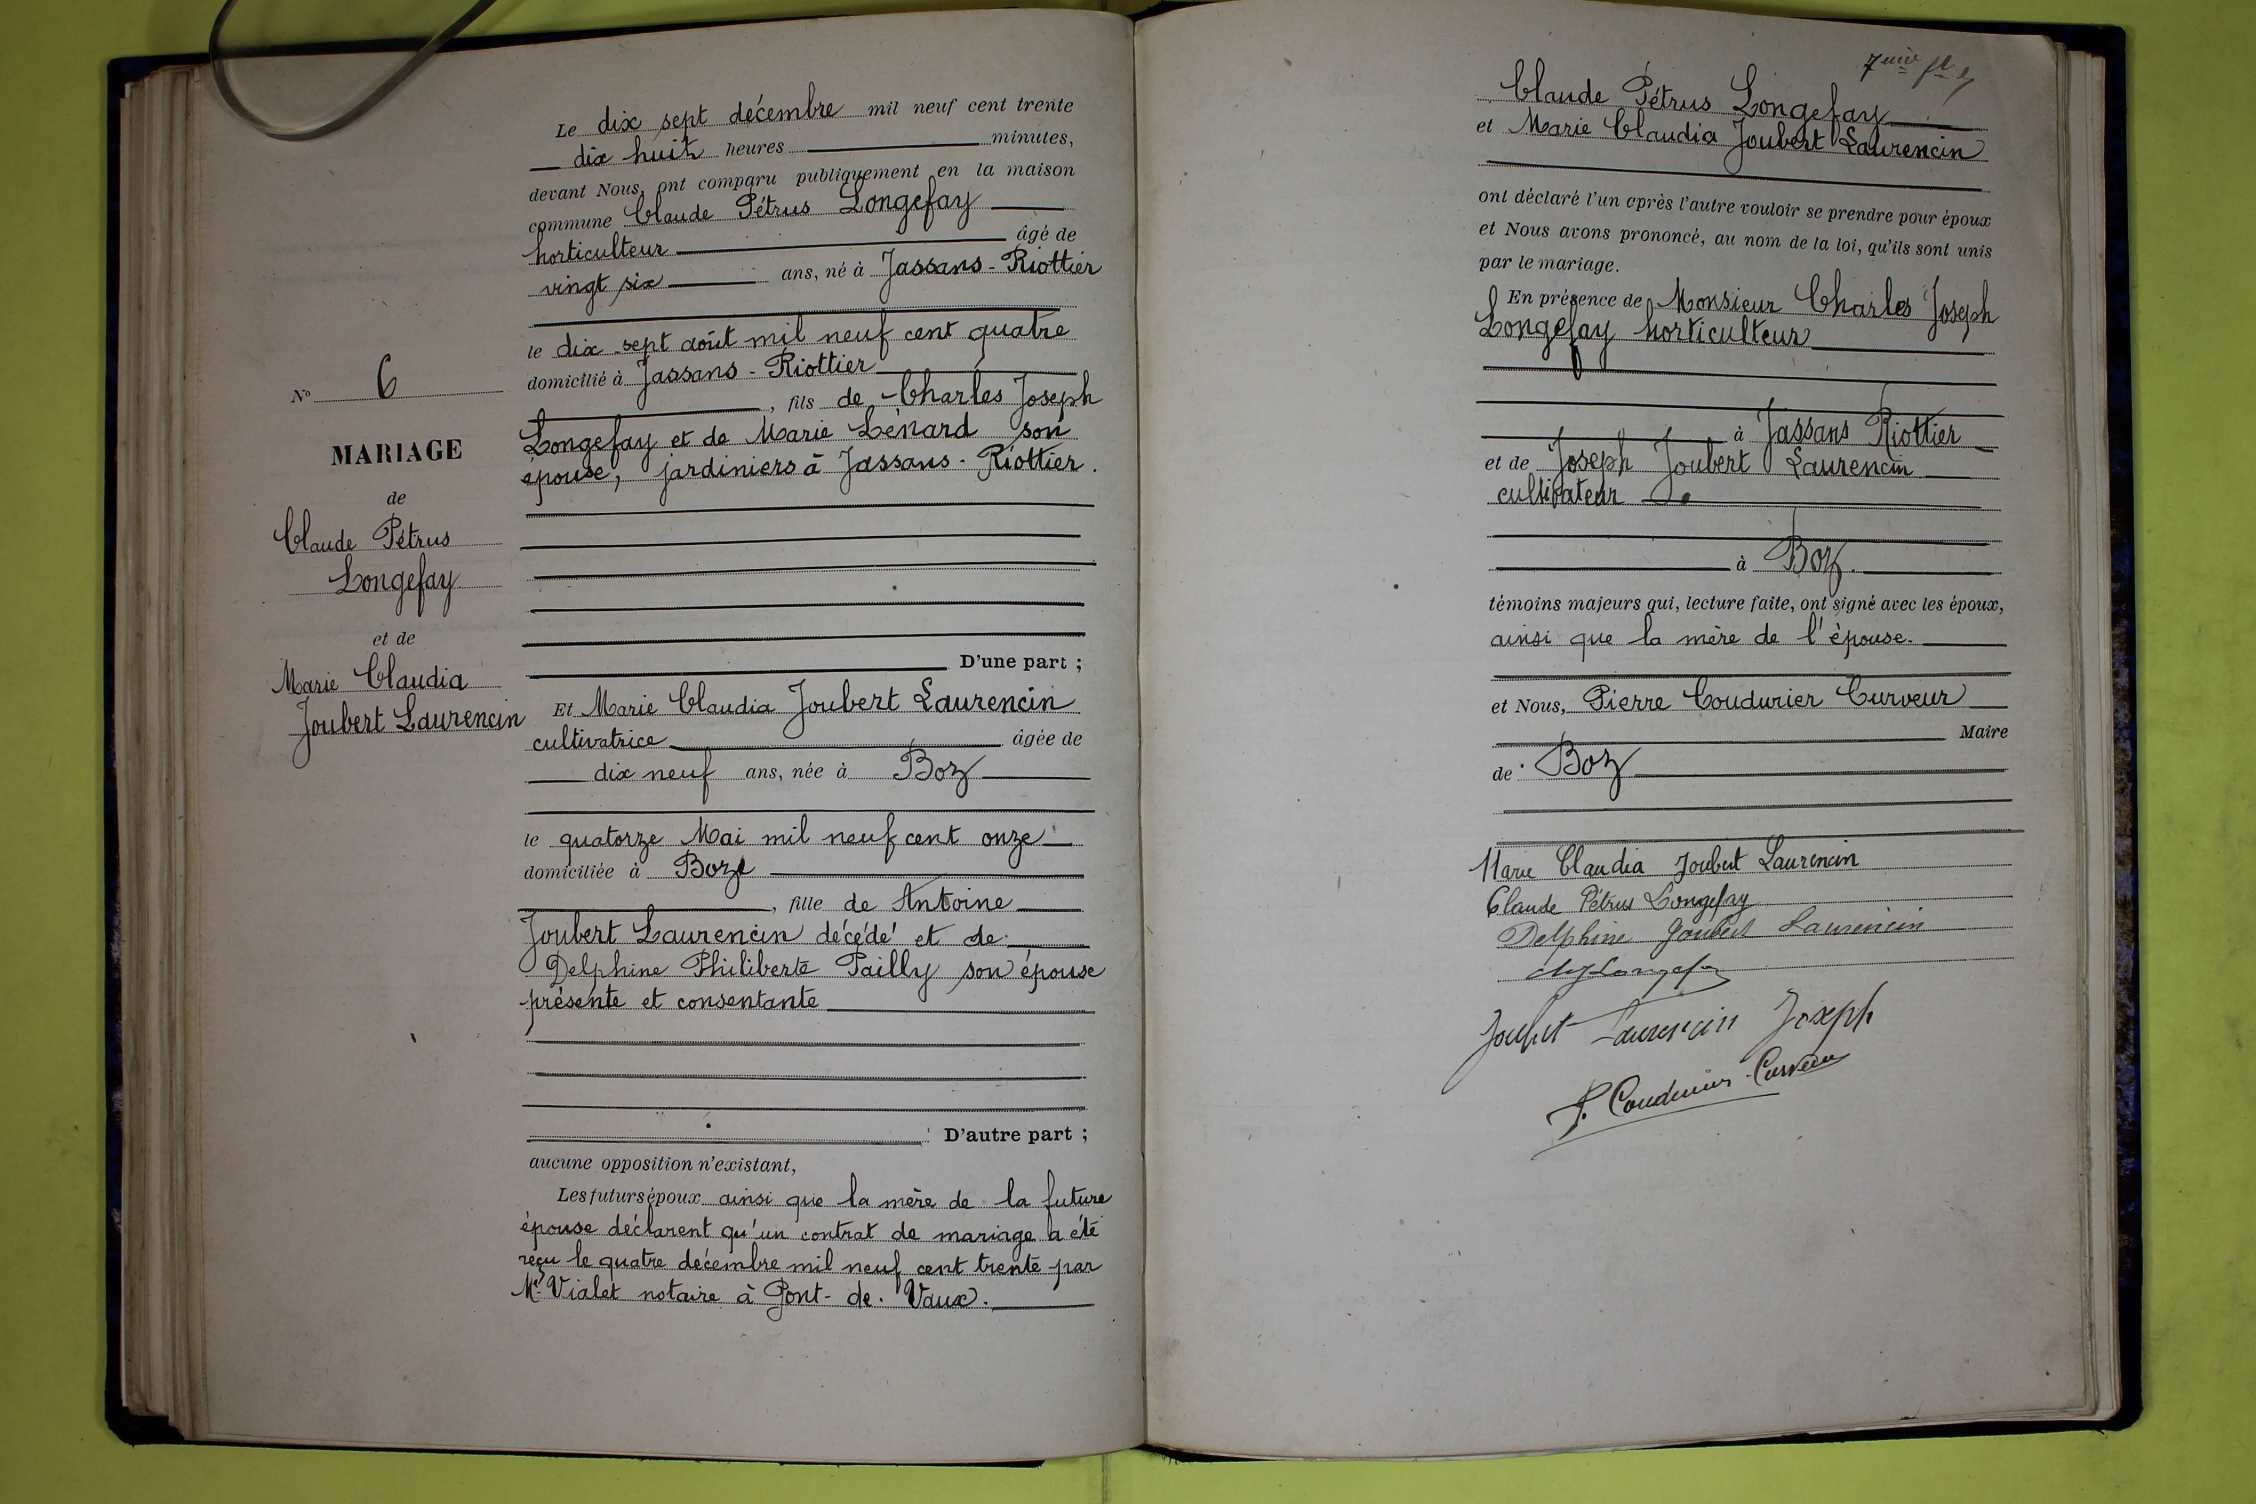 Le dix sept décembre mil neuf cent trente
dix huit heures minutes,
devant Nous, ont comparu publiquement en la maison
commune Claude Pétrus Longefay
horticulteur âgé de
vingt six ans, né à Jassans-Riottier
le dix sept août mil neuf cent quatre
domicilié à Jassans-Riottier
, fils de Charles Joseph
Longefay et de Marie Lénard son
épouse, jardiniers à Jassans-Riottier.
D'une part ;
Nº 6
MARIAGE
de
Claude Pétrus
Longefay
et de
Marie Claudia
Joubert Laurencin
Et Marie Claudia Joubert Laurencin
cultivatrice âgée de
dix neuf ans, née à Boz
le quatorze Mai mil neuf cent onze
domiciliée à Boz
, fille de Antoine
Joubert Laurencin décédé et de
Delphine Philiberte Pailly son épouse
présente et consentante
D'autre part ;
aucune opposition n'existant,
Les futurs époux ainsi que la mère de la future
épouse déclarent qu'un contrat de mariage a été
reçu le quatre décembre mil neuf cent trente par
Me Vialet notaire à Pont-de-Vaux.
7mie
Claude Pétrus Longefay
et Marie Claudia Joubert Laurencin
ont déclaré l'un après l'autre vouloir se prendre pour époux
et Nous avons prononcé, au nom de la loi, qu'ils sont unis
par le mariage.
En présence de Monsieur Charles Joseph
Longefay horticulteur
à Jassans Riottier
et de Joseph Joubert Laurencin
cultivateur
à Boz
témoins majeurs qui, lecture faite, ont signé avec les époux,
ainsi que la mère de l'épouse.
et Nous, Pierre Coudurier Curveur
Maire
de Boz
Marie Claudia Joubert Laurencin
Claude Pétrus Longefay
Delphine Joubert Laurencin
Longefay
Joubert Laurencin Joseph
P. Coudurier-Curveur